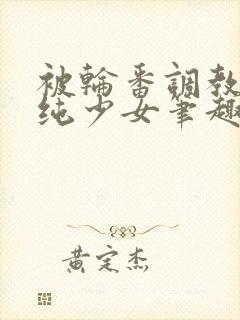 被輪番調教
纯少女筆趣
黄定杰